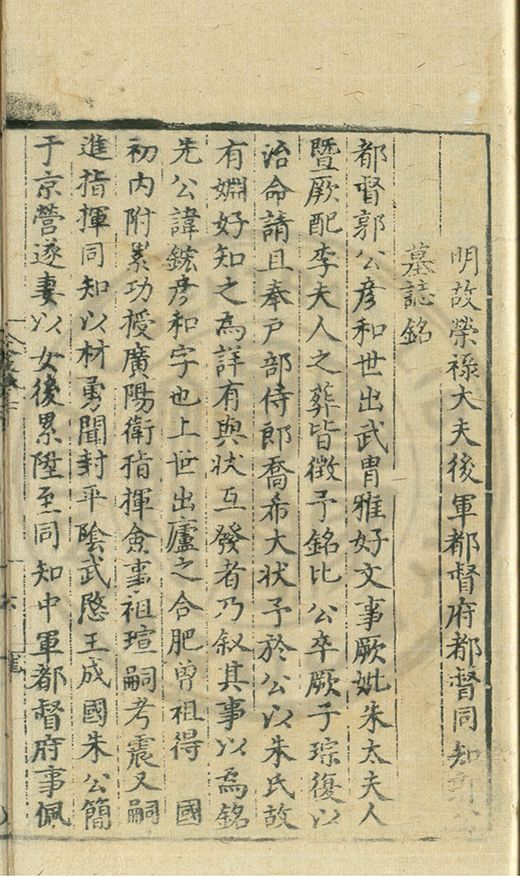 明故榮祿大夫後軍都督府都督同知
墓誌銘
都督郭公彥和世出武胄雅好文事厥妣朱太夫人
暨厥配李夫人之葬皆徵予銘比公卒厥子琮復以
治命請且奉戸部侍郎喬希大狀予於公以朱氏故
有婣好知之為詳有與狀互發者乃叙其事以為銘
先公諱鋐彥和字也上世出廬之合肥曽祖得 國
初内附累功授廣陽衛指揮僉事祖瑄嗣考震又嗣
進指揮同知以材勇聞封平陰武愍王成國朱公簡
于京營遂妻以女後累陞至同知中軍都督府事佩